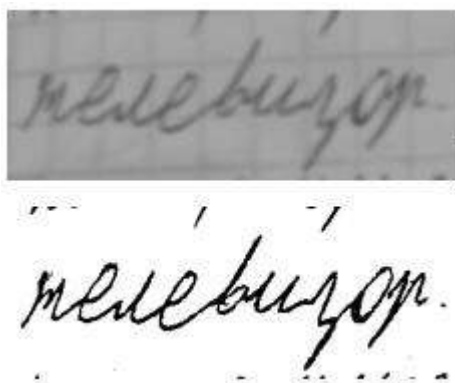 телевизор.
телевизор.